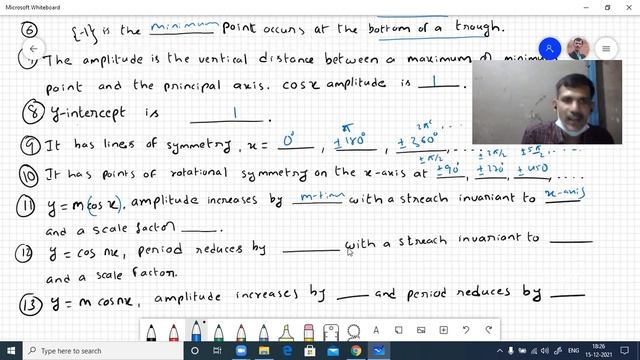 Microsoft Whiteboard
⑥ {-1} is the minimum point occurs at the bottom of a trough.
The amplitude is the vertical distance between a maximum or minimum
point and the principal axis. cosx amplitude is 1
⑧ y-intercept is 1
π 2πᶜ ....
⑨ It has lines of symmetry, x = 0°, ±180°, ±360° ....
±π/2 ±3π/2 ±5π/2
⑩ It has points of rotational symmetry on the x-axis at ±90°, ±270, ±450, ....
⑪ y = m(cos x), amplitude increases by m-times with a streach invariant to x-axis
and a scale factor ____.
⑫ y = cos nx, period reduces by ____ with a streach invariant to ____
and a scale factor.
⑬ y = m cosnx, amplitude increases by ____ and period reduces by ____
Type here to search
ENG
18:26
15-12-2021